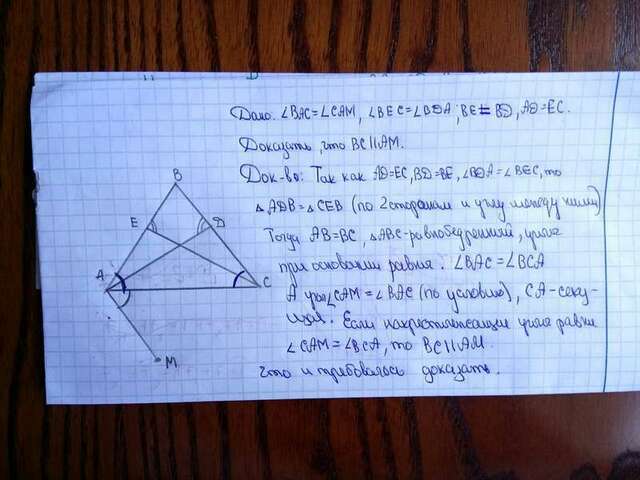 Дано: ∠BAC=∠CAM, ∠BEC=∠BDA, BE=BD, AD=EC.
Доказать, что BC||AM.
Док-во: Так как AD=EC, BD=BE, ∠BDA=∠BEC, то
△ADB=△CEB (по 2 сторонам и углу между ними)
Тогда AB=BC, △ABC-равнобедренный, углы
при основании равны. ∠BAC=∠BCA
А угол ∠CAM=∠BAC (по условию), CA-секу-
щая. Если накрестлежащие углы равны
∠CAM=∠BCA, то BC||AM.
Что и требовалось доказать.
B
E
D
A
C
M